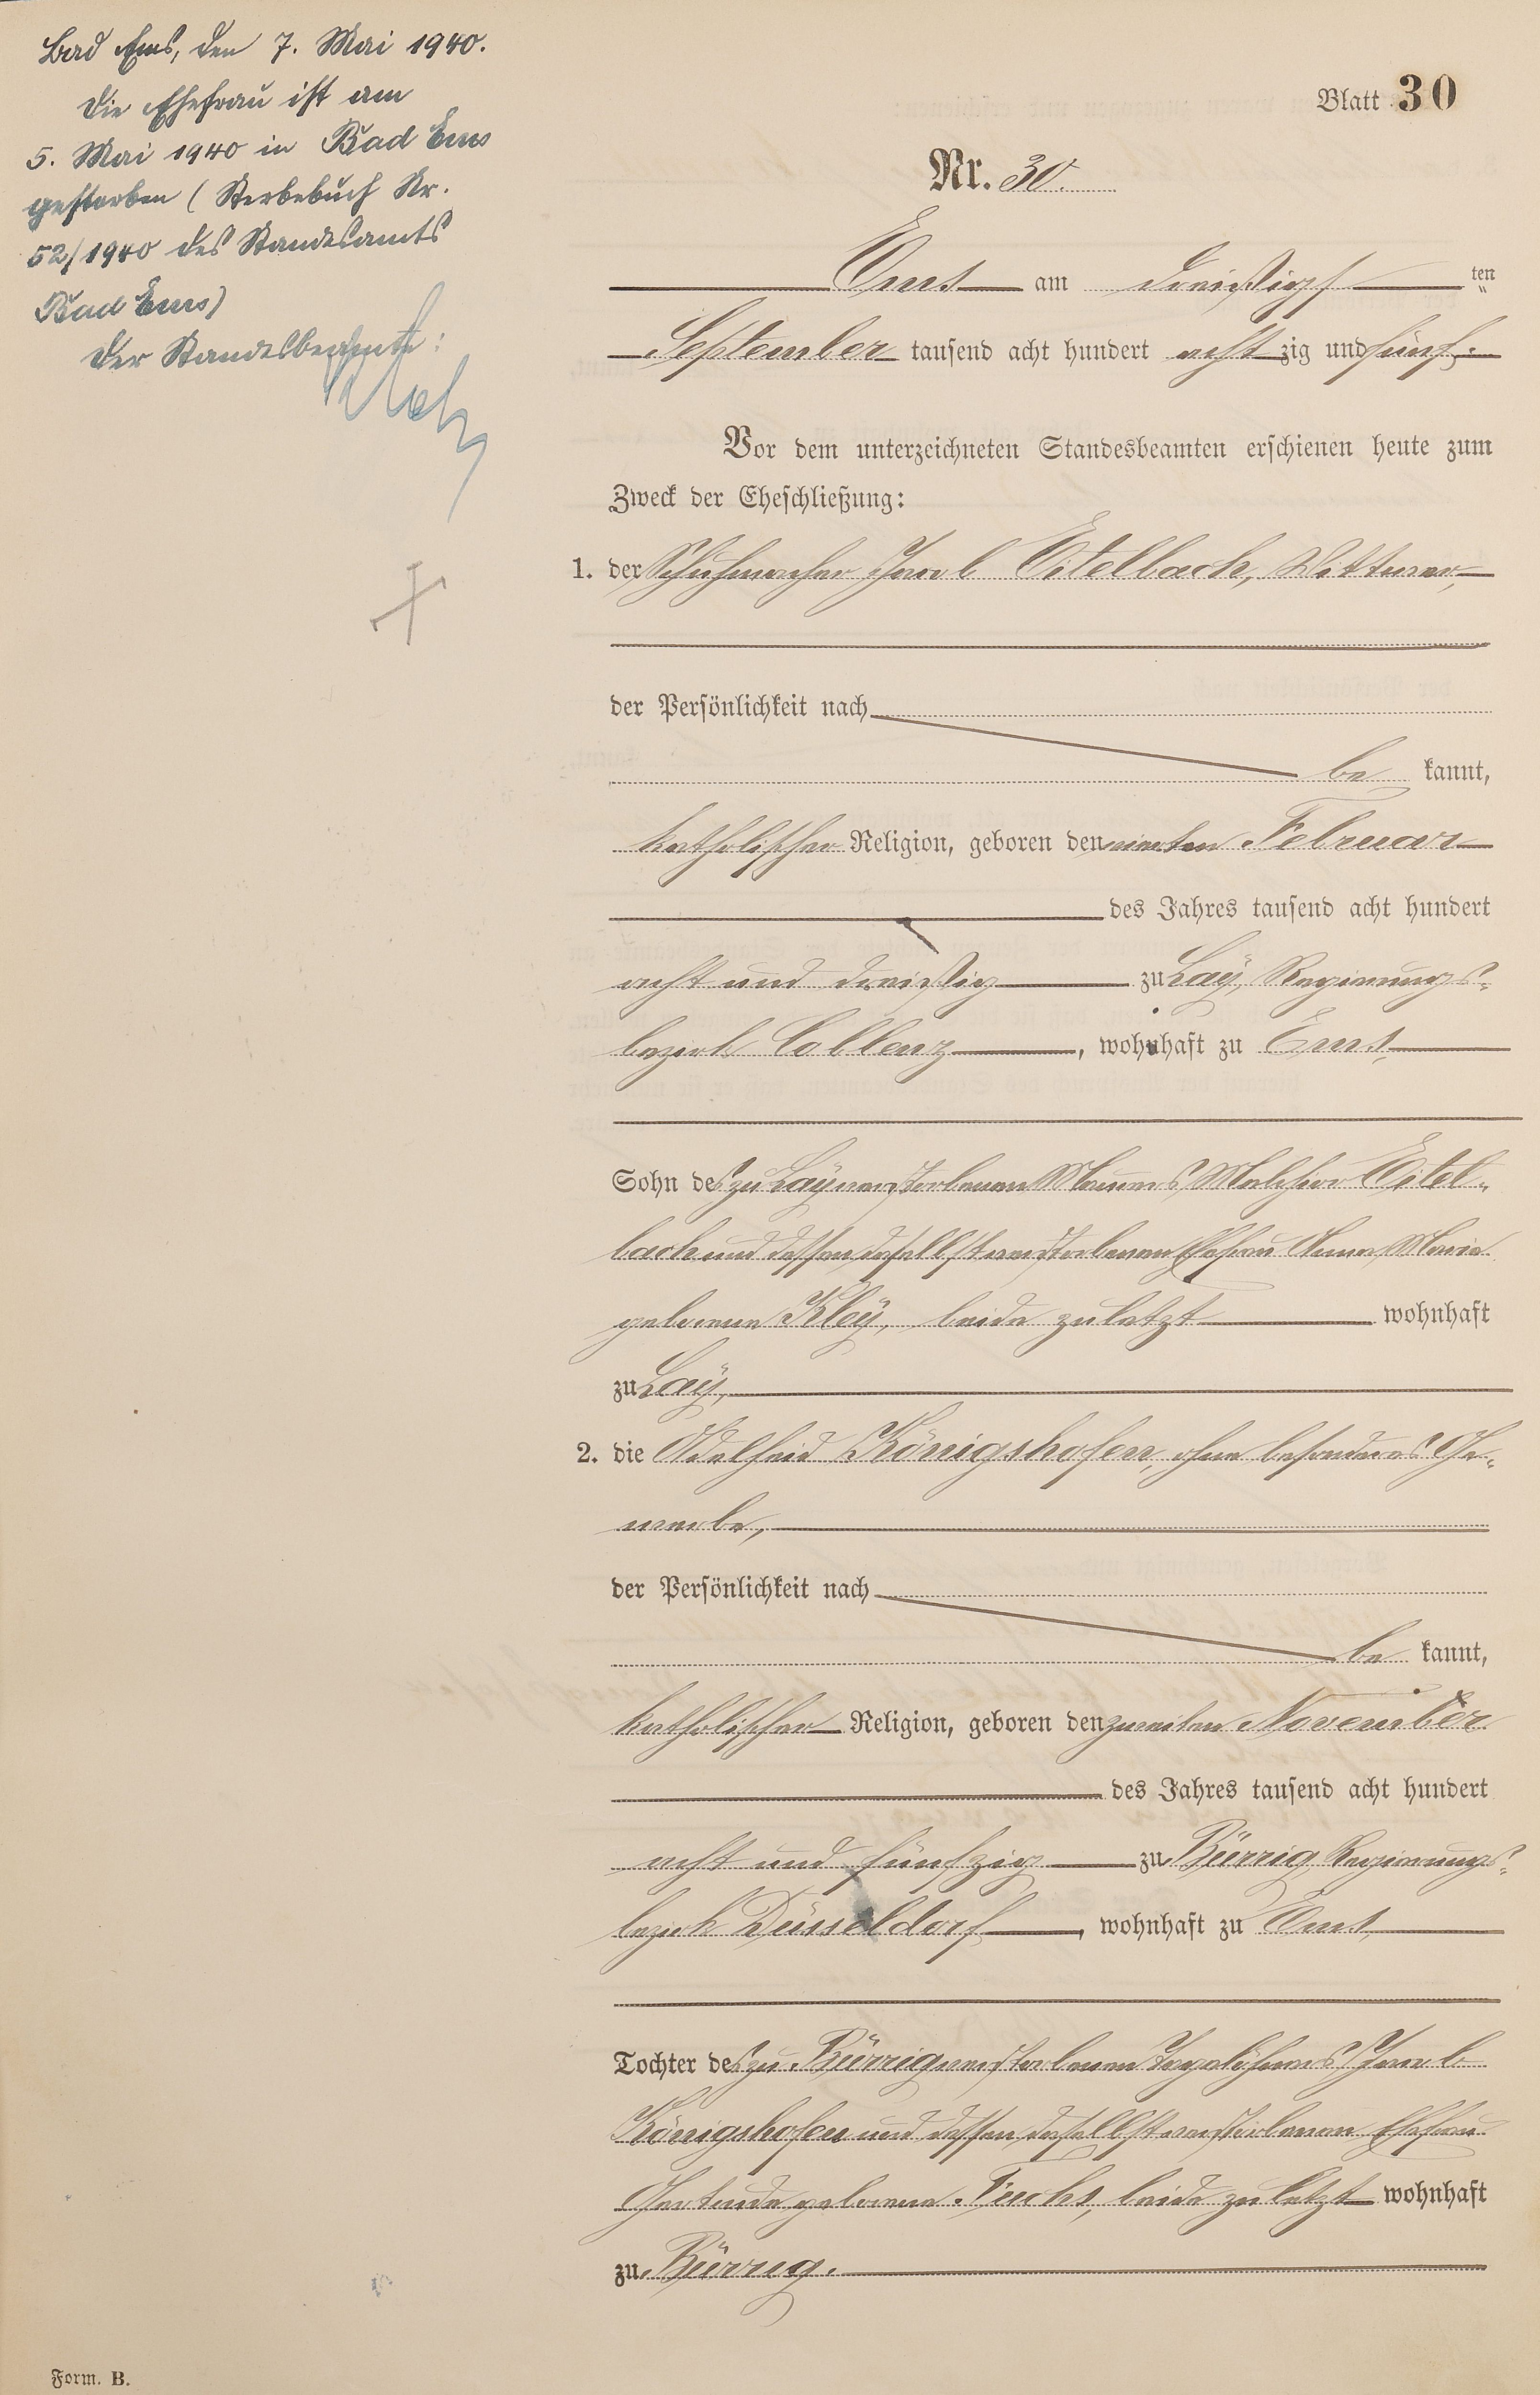 Bad Ems, den 7. Mai 1940.
Die Ehefrau ist am
5. Mai 1940 in Bad Ems
gestorben (Sterbebuch Nr.
52/1940 des Standesamts
Bad Ems)
Der Standesbeamte:
Blatt 30
Nr. 30.
Ems am dreißigsten
September tausend acht hundert achtzig und fünf.
Vor dem unterzeichneten Standesbeamten erschienen heute zum
Zweck der Eheschließung:
1. der Schuhmacher Jacob Eitelbach, Wittwer,
der Persönlichkeit nach
be kannt,
katholischer Religion, geboren den vierten Februar
des Jahres tausend acht hundert
acht und dreißig zu Laÿ, Regierungs-
bezirk Coblenz, wohnhaft zu Ems,
Sohn des zu Laÿ verstorbenen Melchior Eitel-
bach und dessen daselbst verstorbenen Ehefrau Anna Maria
geborene Kleÿ, beide zuletzt wohnhaft
zu Laÿ,
2. die Adelheid Königshofen, ohne besonderes Ge-
werbe,
der Persönlichkeit nach
be kannt,
katholischer Religion, geboren den zweiten November
des Jahres tausend acht hundert
acht und fünfzig zu Bürrig, Regierungs-
bezirk Düsseldorf, wohnhaft zu Ems,
Tochter des zu Bürrig verstorbenen Tagelöhners Jacob
Königshofen und dessen daselbst verstorbenen Ehefrau
Gertrude geborene Fuchs, beide zuletzt wohnhaft
zu Bürrig.
Form. B.